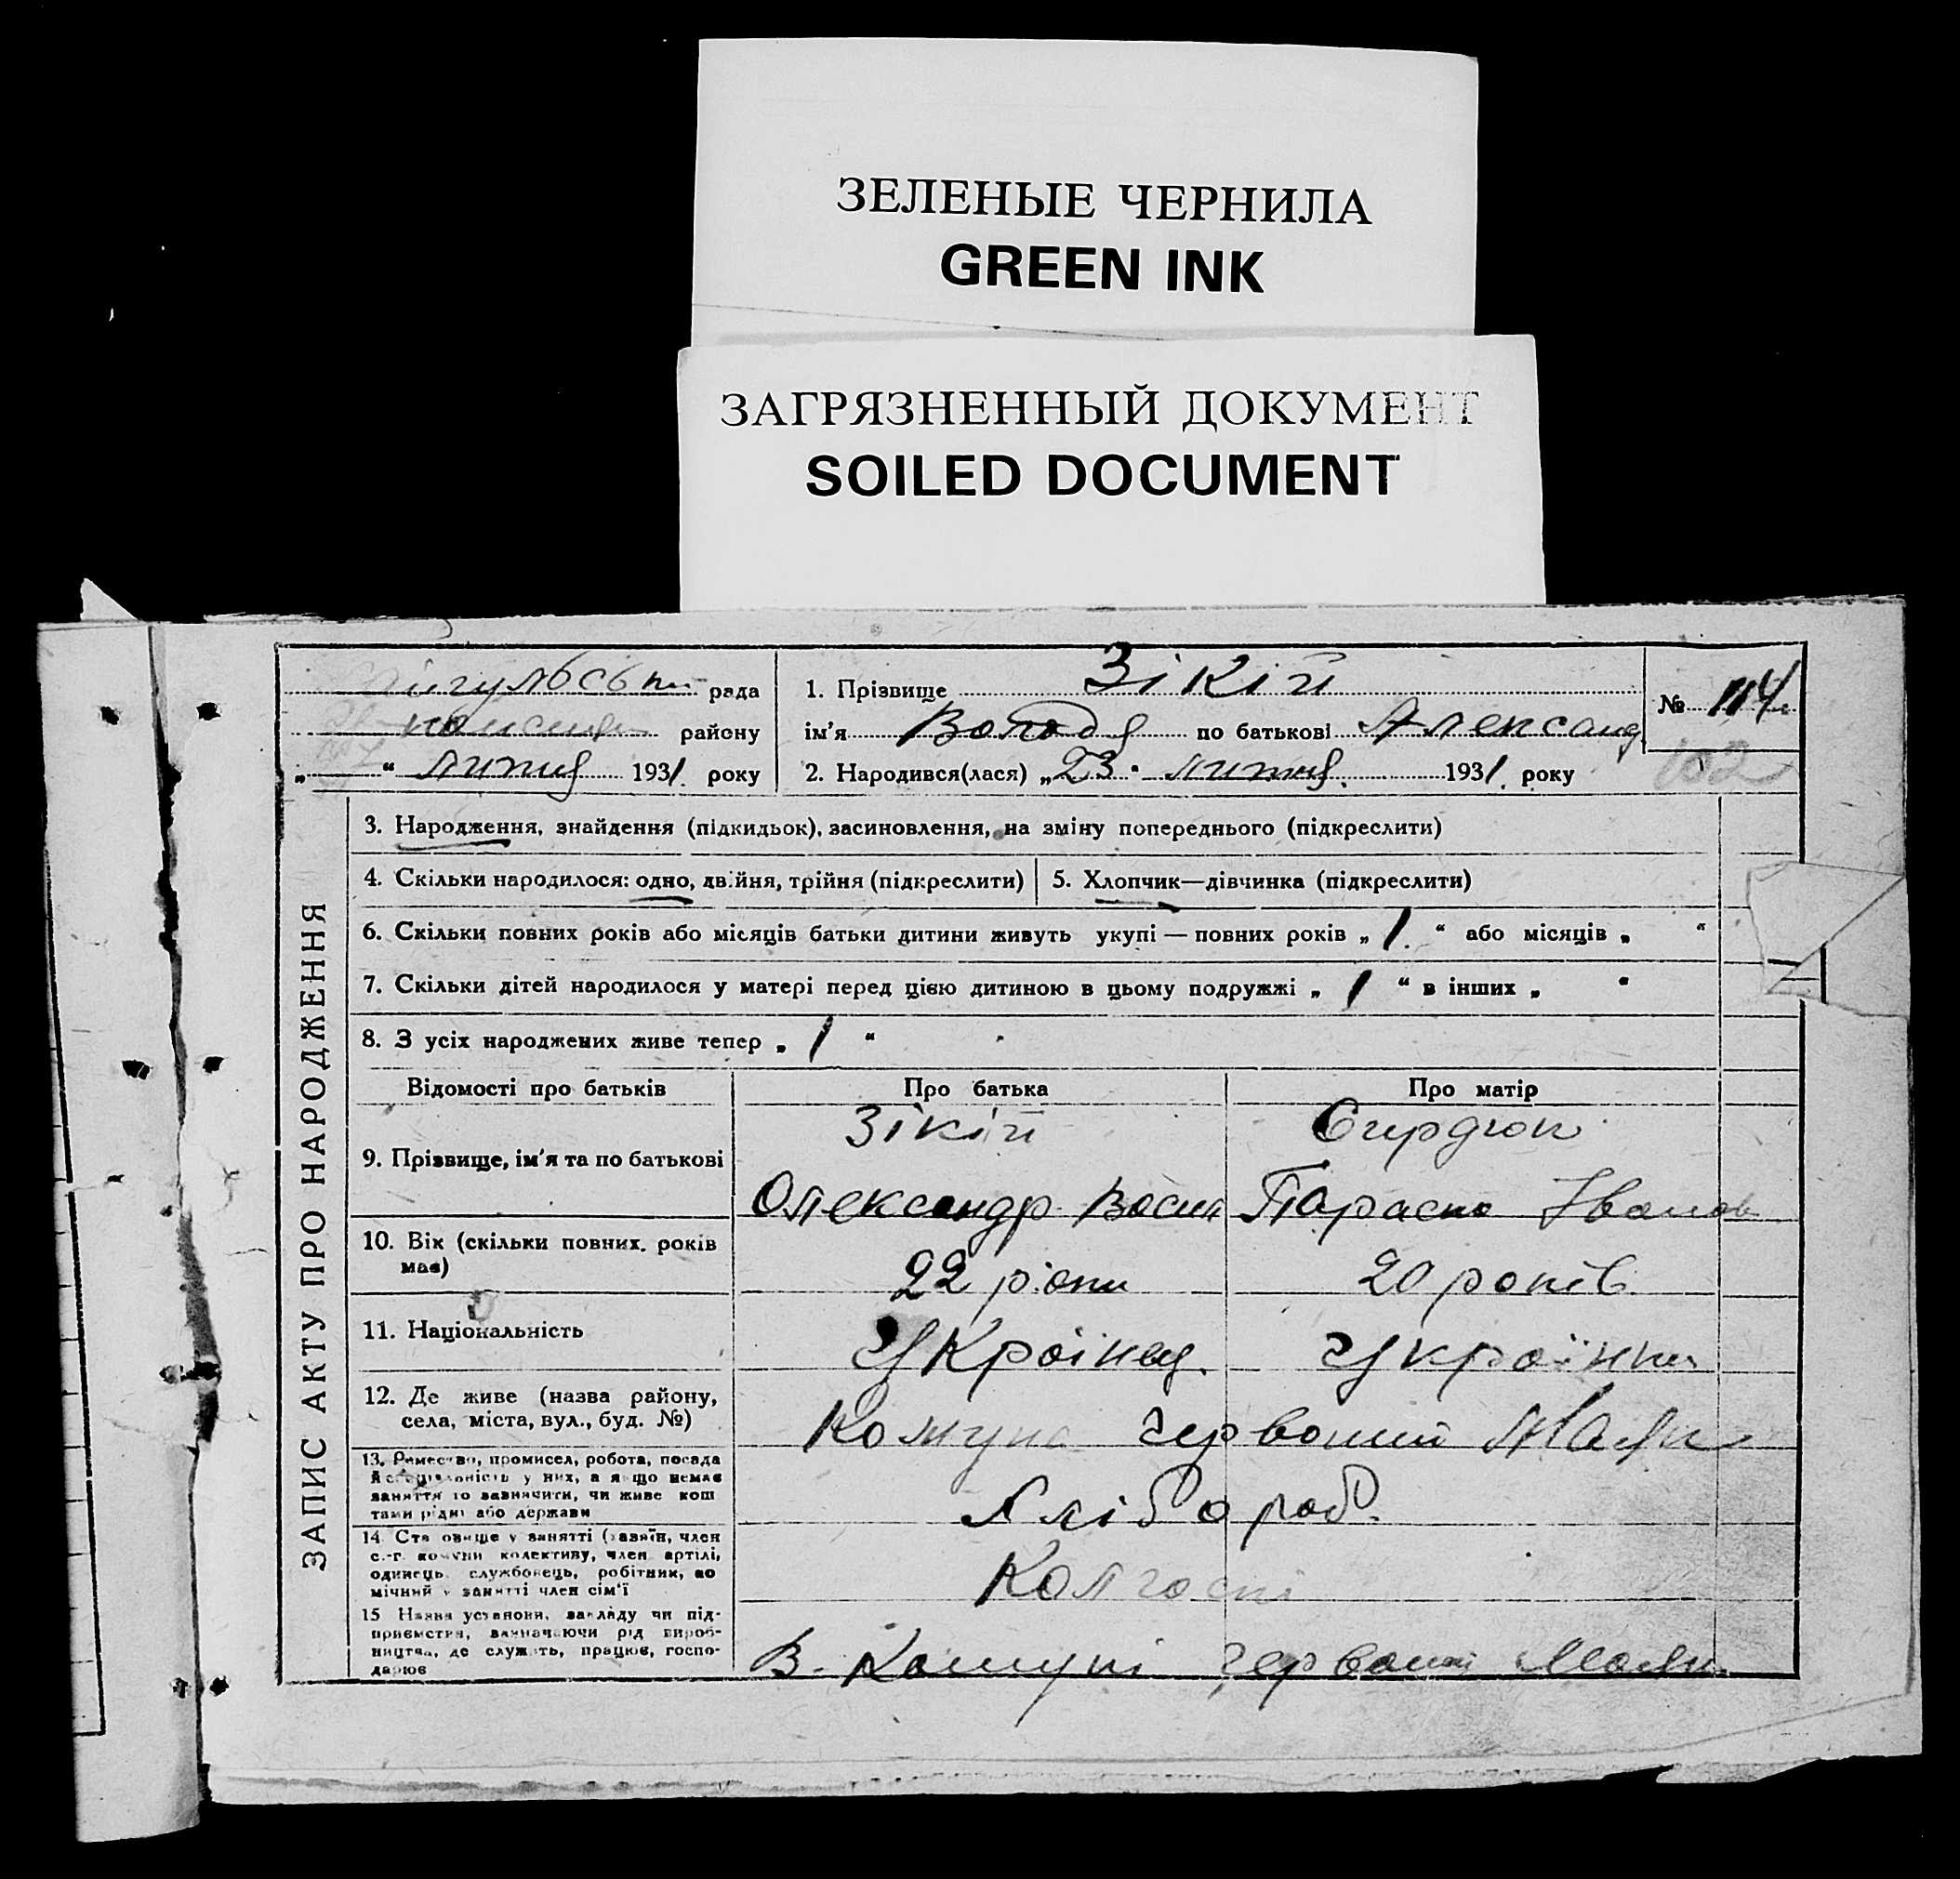 ЗЕЛЕНЫЕ ЧЕРНИЛА
GREEN INK
ЗАГРЯЗНЕННЫЙ ДОКУМЕНТ
SOILED DOCUMENT
рада
району
„ “ липня 1931. року
1. Прізвище Зікій
ім'я Володя по батькові Александ.
2. Народився(лася) „23“ липня 1931. року
№ 114
102
ЗАПИС АКТУ ПРО НАРОДЖЕННЯ
3. Народження, знайдення (підкидьок), засиновлення, на зміну попереднього (підкреслити)
4. Скільки народилося: одно, двійня, трійня (підкреслити)
5. Хлопчик—дівчинка (підкреслити)
6. Скільки повних років або місяців батьки дитини живуть укупі — повних років „ 1. “ або місяців „ “
7. Скільки дітей народилося у матері перед цією дитиною в цьому подружжі „ 1 “ в інших „ “
8. З усіх народжених живе тепер „ 1 “
Відомості про батьків Про батька Про матір
9. Прізвище, ім'я та по батькові
Зікій
Олександр Васил
Параска Іванов
10. Вік (скільки повних. років
має)
22 роки
20 років
11. Національність
Українец.
Українка
12. Де живе (назва району,
села, міста, вул., буд. №)
Комуна Червоний Маяк
13. Ремество, промисел, робота, посада
й спеціяльність у них, а якщо немає
заняття то зазначити, чи живе кош
тами рідні або держави
Хлібороб.
14 Становище у занятті (хазяїн, член
с.-г. комуни колективу, член артілі,
одинець, службовець, робітник, по
мічний у занятті член сім'ї
Колгосп
15 Назва установи, закладу чи під-
приємства, зазначаючи рід вироб-
ництва, де служить, працює, госпо-
дарює
В. Комуні Червоний Маяк